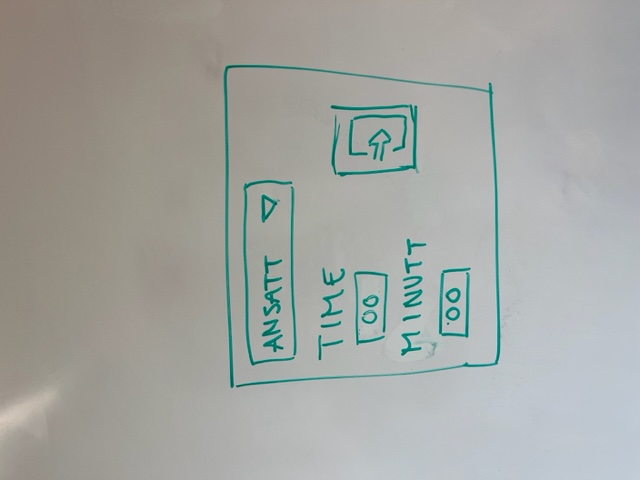 ANSATT
TIME
00
MINUTT
00